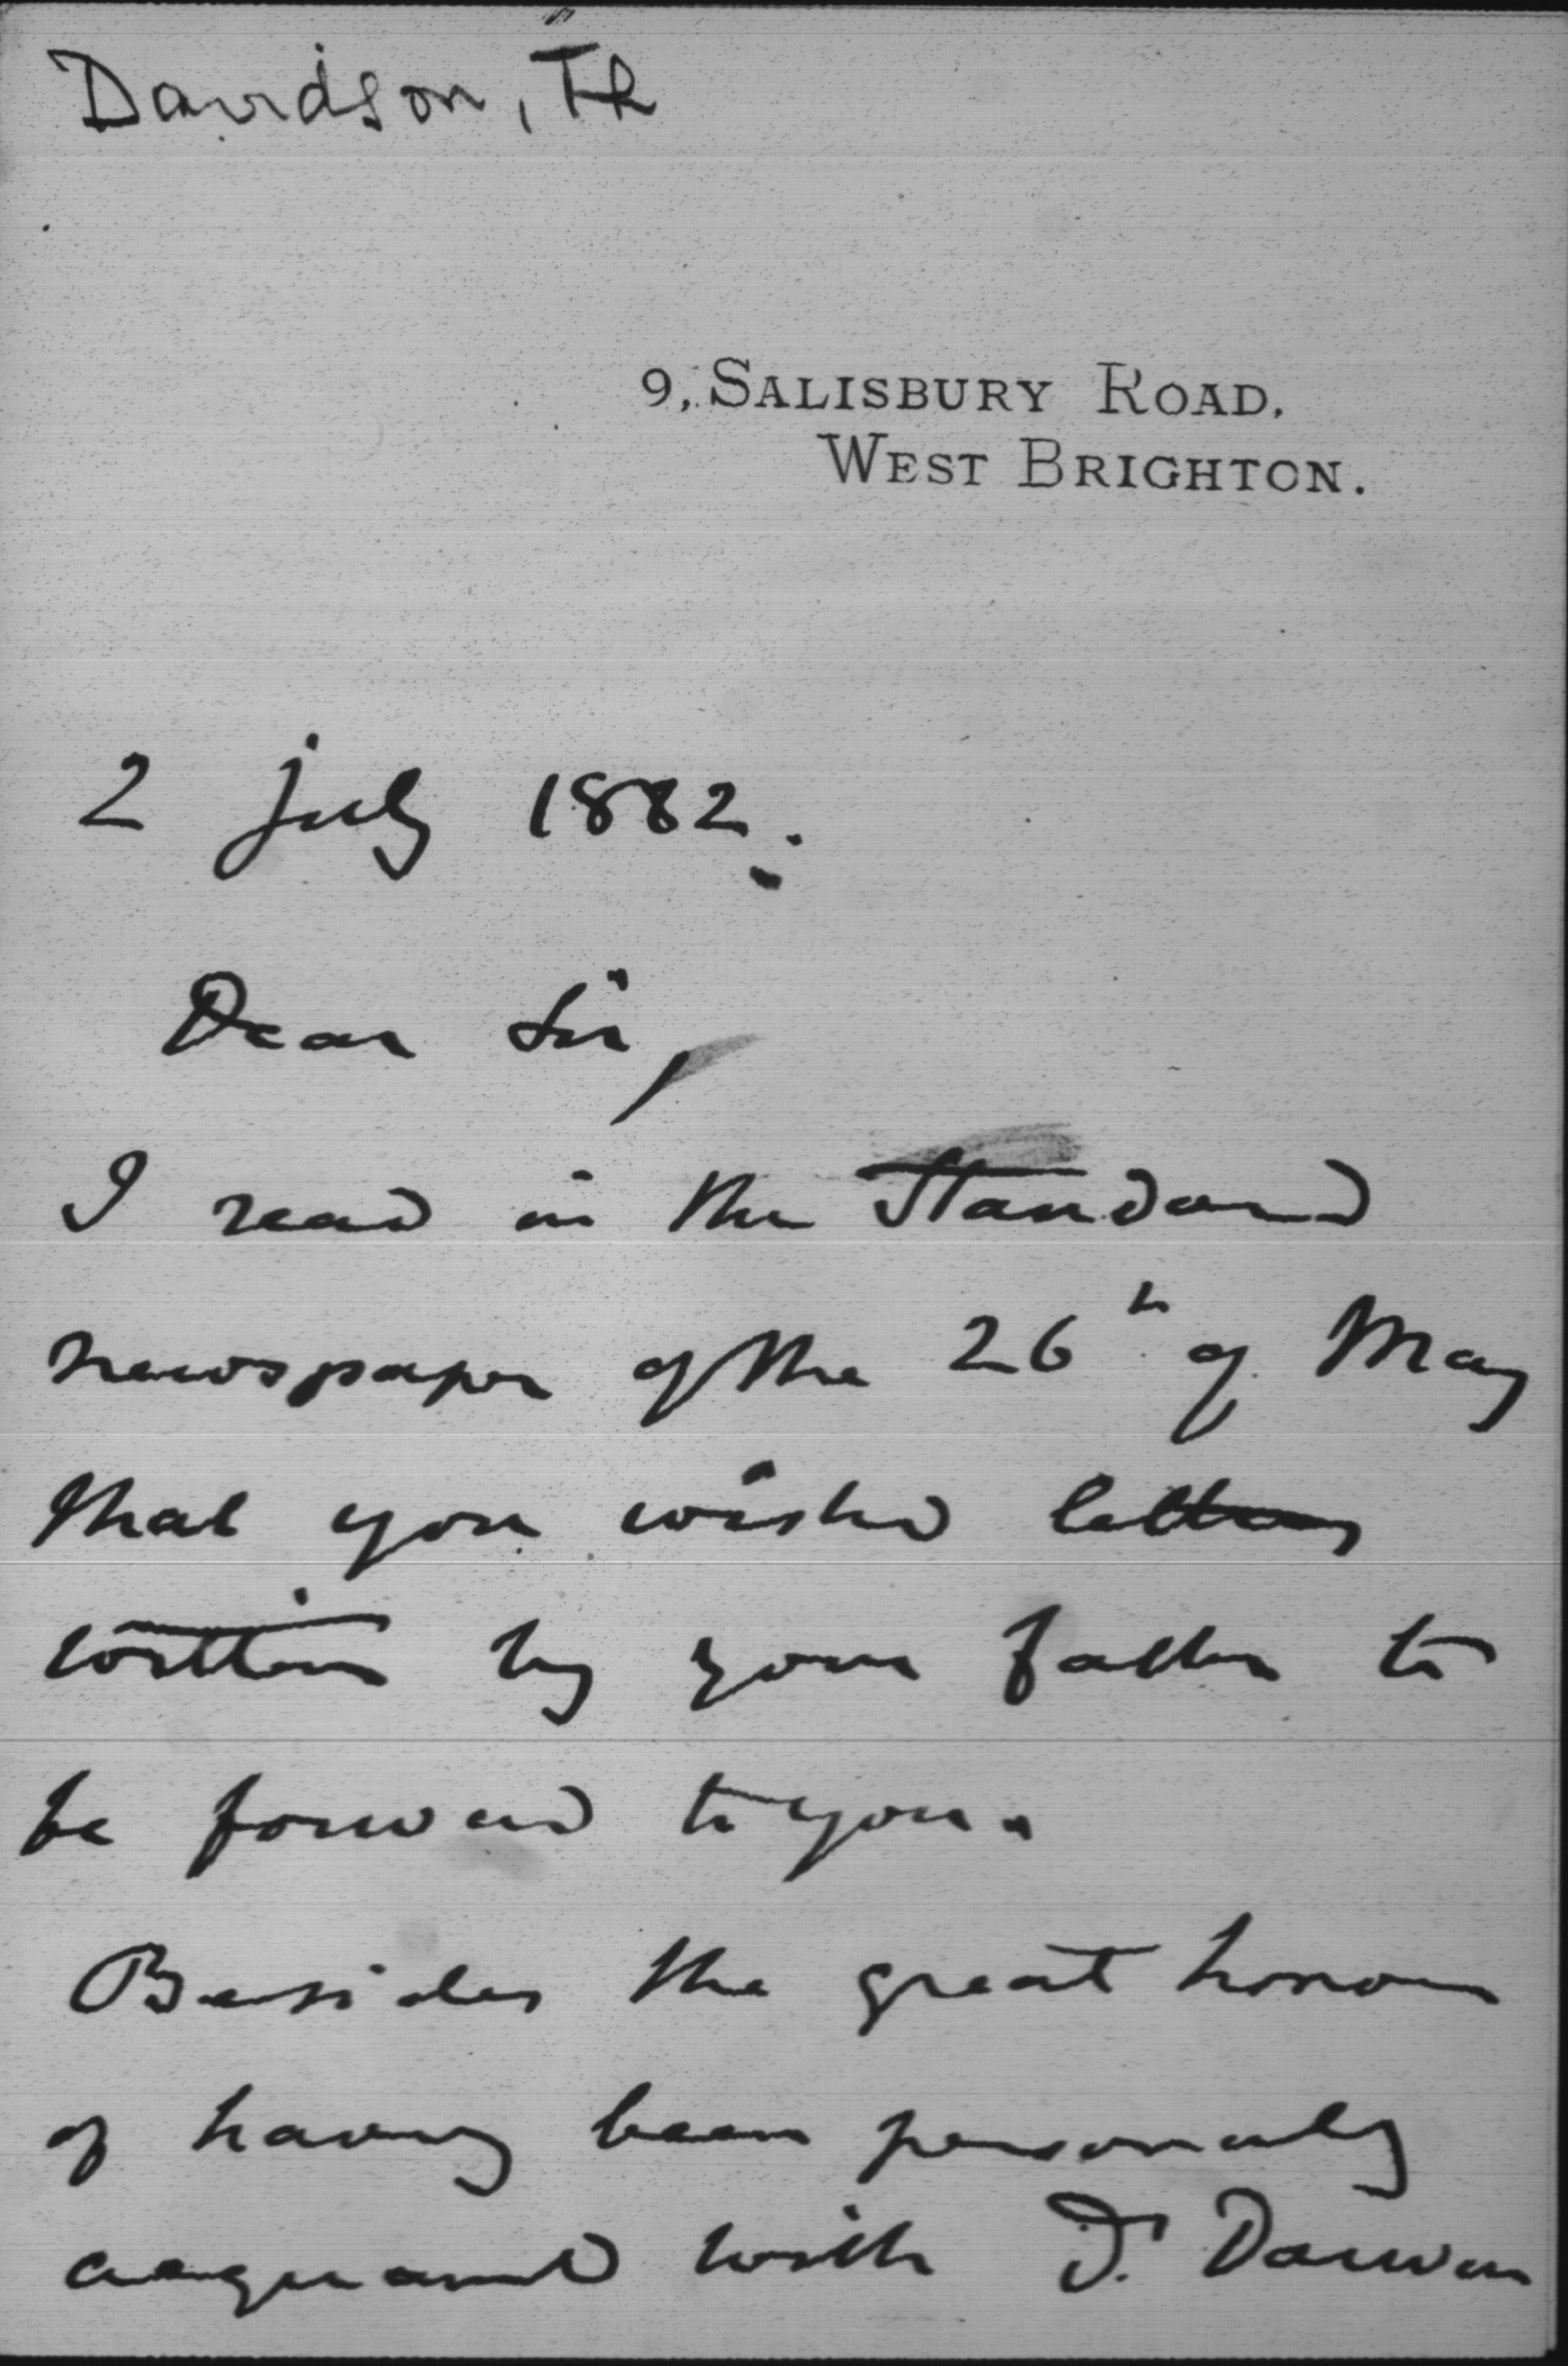 Davidson, Th
9, SALISBURY ROAD,
WEST BRIGHTON.
2 July 1882.
Dear Sir,
I read in the Standard
newspaper of the 26th of May
that you wished letters
written by your father to
be forward to you.
Besides the great honour
of having been personaly
acquaint with Dr. Darwin